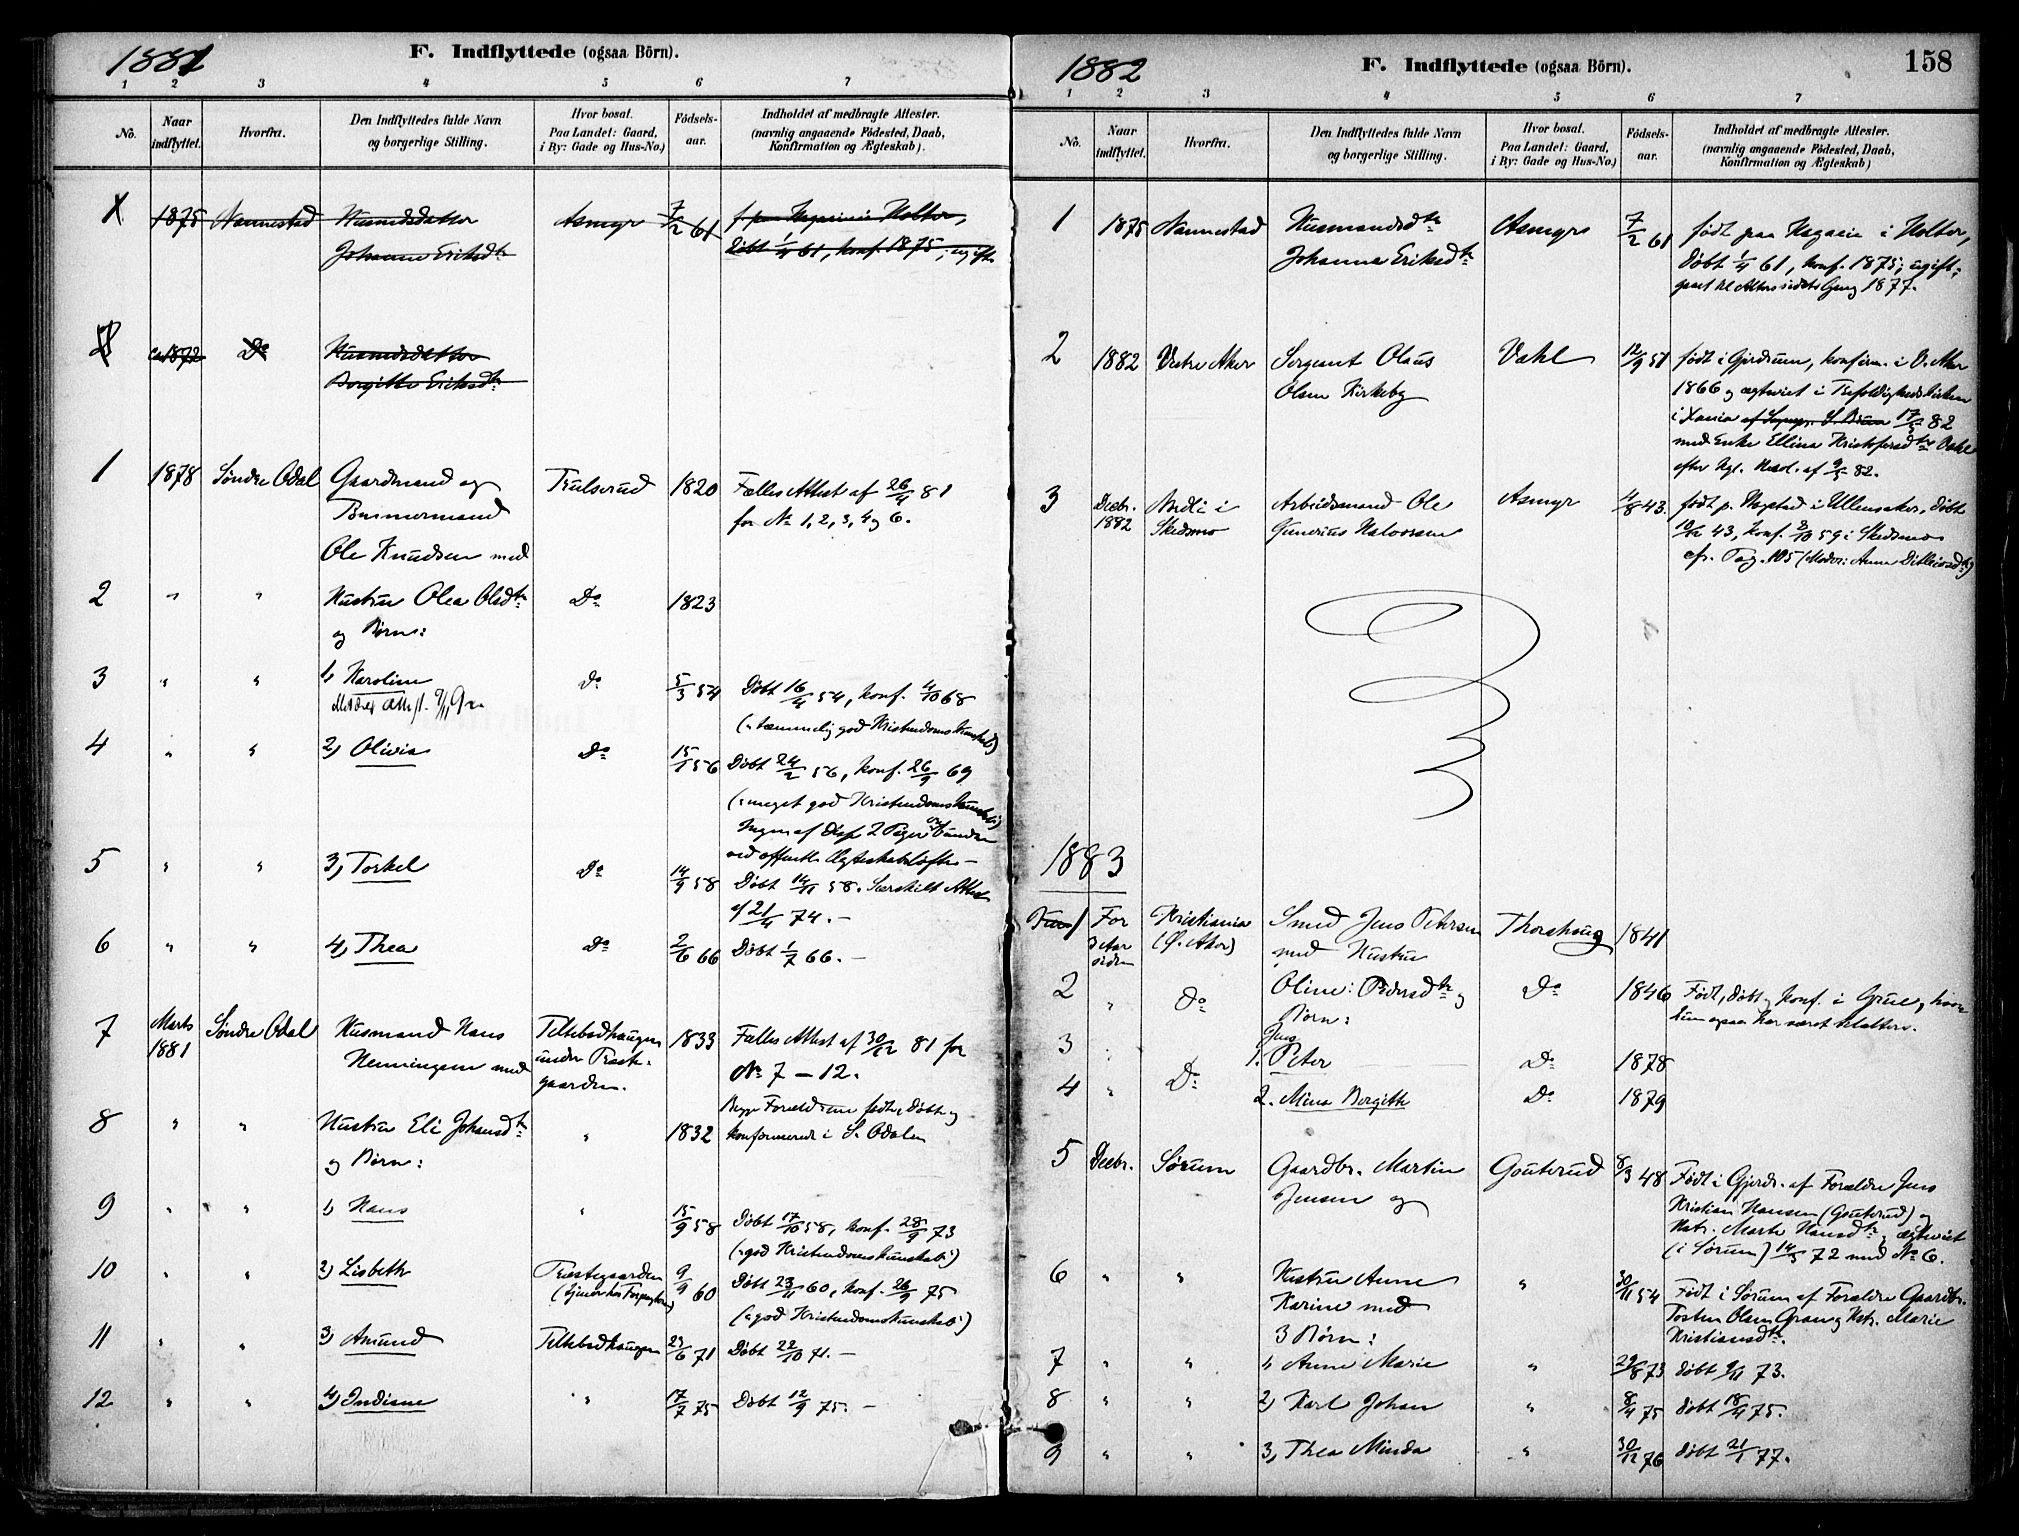 1881
F. Indflyttede (ogsaa Börn).
1 2 3 4 5 6 7
No. Naar indflyttet. Hvorfra. Den Indflyttedes fulde Navn og borgerlige Stilling. Hvor bosat. Paa Landet: Gaard, i By: Gade og Hus-No.) Fødsels-aar. Indholdet af medbragte Attester. (navnlig angaaende Födested, Daab, Konfirmation og Ægteskab).
1875 Nannestad Husmdsdatter Asmyr 7/2 61
Johanne Eriksdtr Döbt 1/4 61, konf. 1875, ugift
ca 1872 Do Husmdsdatter
Borgitte Eriksdtr
1 1878 Søndre Odal Gaardmand og Trulserud 1820 Fælles Attest af 26/4 81
for No 1, 2, 3, 4 og 6.
Ole Knudsen med
2 " " Hustru Olea Olsdtr Do 1823
og Børn:
3 " " 1, Karoline Do 5/3 54 Döbt 16/4 54, konf. 4/10 68
(: tæmmelig god Kristendomskundskab:)
4 " " 2, Olivia Do 15/1 56 Döbt 24/2 56, konf. 26/9 69
(: meget god Kristendomskundskab:)
Ingen af disse 2 Piger er bunden
ved offentl. Ægteskabsløfte –
5 " " 3, Torkel Do 14/9 58 Döbt 14/11 58. Særskilt Attest
af 21/4 74. –
6 " " 4, Thea Do 2/6 66 Döbt 1/7 66. –
7 Marts 1881 Søndre Odal Husmand Hans Teltebadhaugen 1833 Fælles Attest af 30/12 81 for
Henningsen med under Præste- No 7 – 12.
gaarden.
Begge Forældrene fødte, döbte og
8 " " Hustru Eli Johansdtr " 1832 konfirmerede i S. Odalen
og Børn:
9 " " 1, Hans " 15/9 58 Döbt 17/10 58, konf. 28/9 73
(: god Kristendomskundskab:)
10 " " 2, Lisbeth Præstegaarden 9/9 60 Döbt 23/11 60, konf. 26/9 75
(tjener hos Forpagteren) (: god Kristendomskundskab:)
11 " " 3, Amund Teltebadhaugen 23/6 71 Döbt 22/10 71. –
12 " " 4, Indiane " 17/7 75 Döbt 12/9 75. –
1882
F. Indflyttede (ogsaa Börn).
158
1 2 3 4 5 6 7
No. Naar indflyttet. Hvorfra. Den Indflyttedes fulde Navn og borgerlige Stilling. Hvor bosat. Paa Landet: Gaard, i By: Gade og Hus-No.) Fødsels-aar. Indholdet af medbragte Attester. (navnlig angaaende Födested, Daab, Konfirmation og Ægteskab)
1 1875 Nannestad Husmandsdtr Asmyr 7/2 61 født paa Hagaeie i Holter,
Johanne Eriksdtr Döbt 1/4 61, konf. 1875; ugift;
gaaet til Alters sidste Gang 1877.
2 1882 Vestre Aker Sergeant Olaus Vahl 12/9 51 født i Gjerdrum, konfirm. i V. Aker
Olsen Kirkeby 1866 og ægteviet i Trefoldighedskirken
i Xania 17/5 82
med Enke Elline Kristofersdtr Vahl
efter Kgl. Resol. af 9/5 82.
3 Decbr. 1882 Nordli i Skedsmo Arbeidsmand Ole Asmyr 11/8 43. født p. Hogstad i Ullensaker, döbt
Gunerius Halvorsen 10/12 43, konf. 2/10 59 i Skedsmo
cfr. Pag. 105 (Moder: Anne Ditlevsdtr)
1883
1 For 3 Aar siden Kristiania (Ø. Aker) Smed Jens Petersen Thorshaug 1841
med Hustru
2 " Do Oline Pedersdtr og Do 1846 Født, døbt og konf. i Grue, hvor-
Børn:
3 " Jens
1. Peter Do 1878
4 " Do 2. Mina Bergith Do 1879
5 Decbr. Sørum Gaardbr. Martin Gouterud 8/3 48 Født i Gjerdr. af Forældre Jens
Jensen og Kristian Hansen (Gouterud) og
Hstr. Marte Hansdtr, ægteviet
(i Sørum) 14/3 72 med No 6.
6 " " Hustru Anne " 30/11 54 Født i Sørum af Forældre Gaardbr.
Karine med Torsten Olsen Gran og Hstr. Marie
3 Børn: Kristiansdtr.
7 " " 1, Anne Marie " 29/8 73 döbt 9/11 73.
8 " " 2, Karl Johan " 8/4 75 döbt 18/4 75.
9 " " 3, Thea Minda " 30/12 76 döbt 21/1 77.